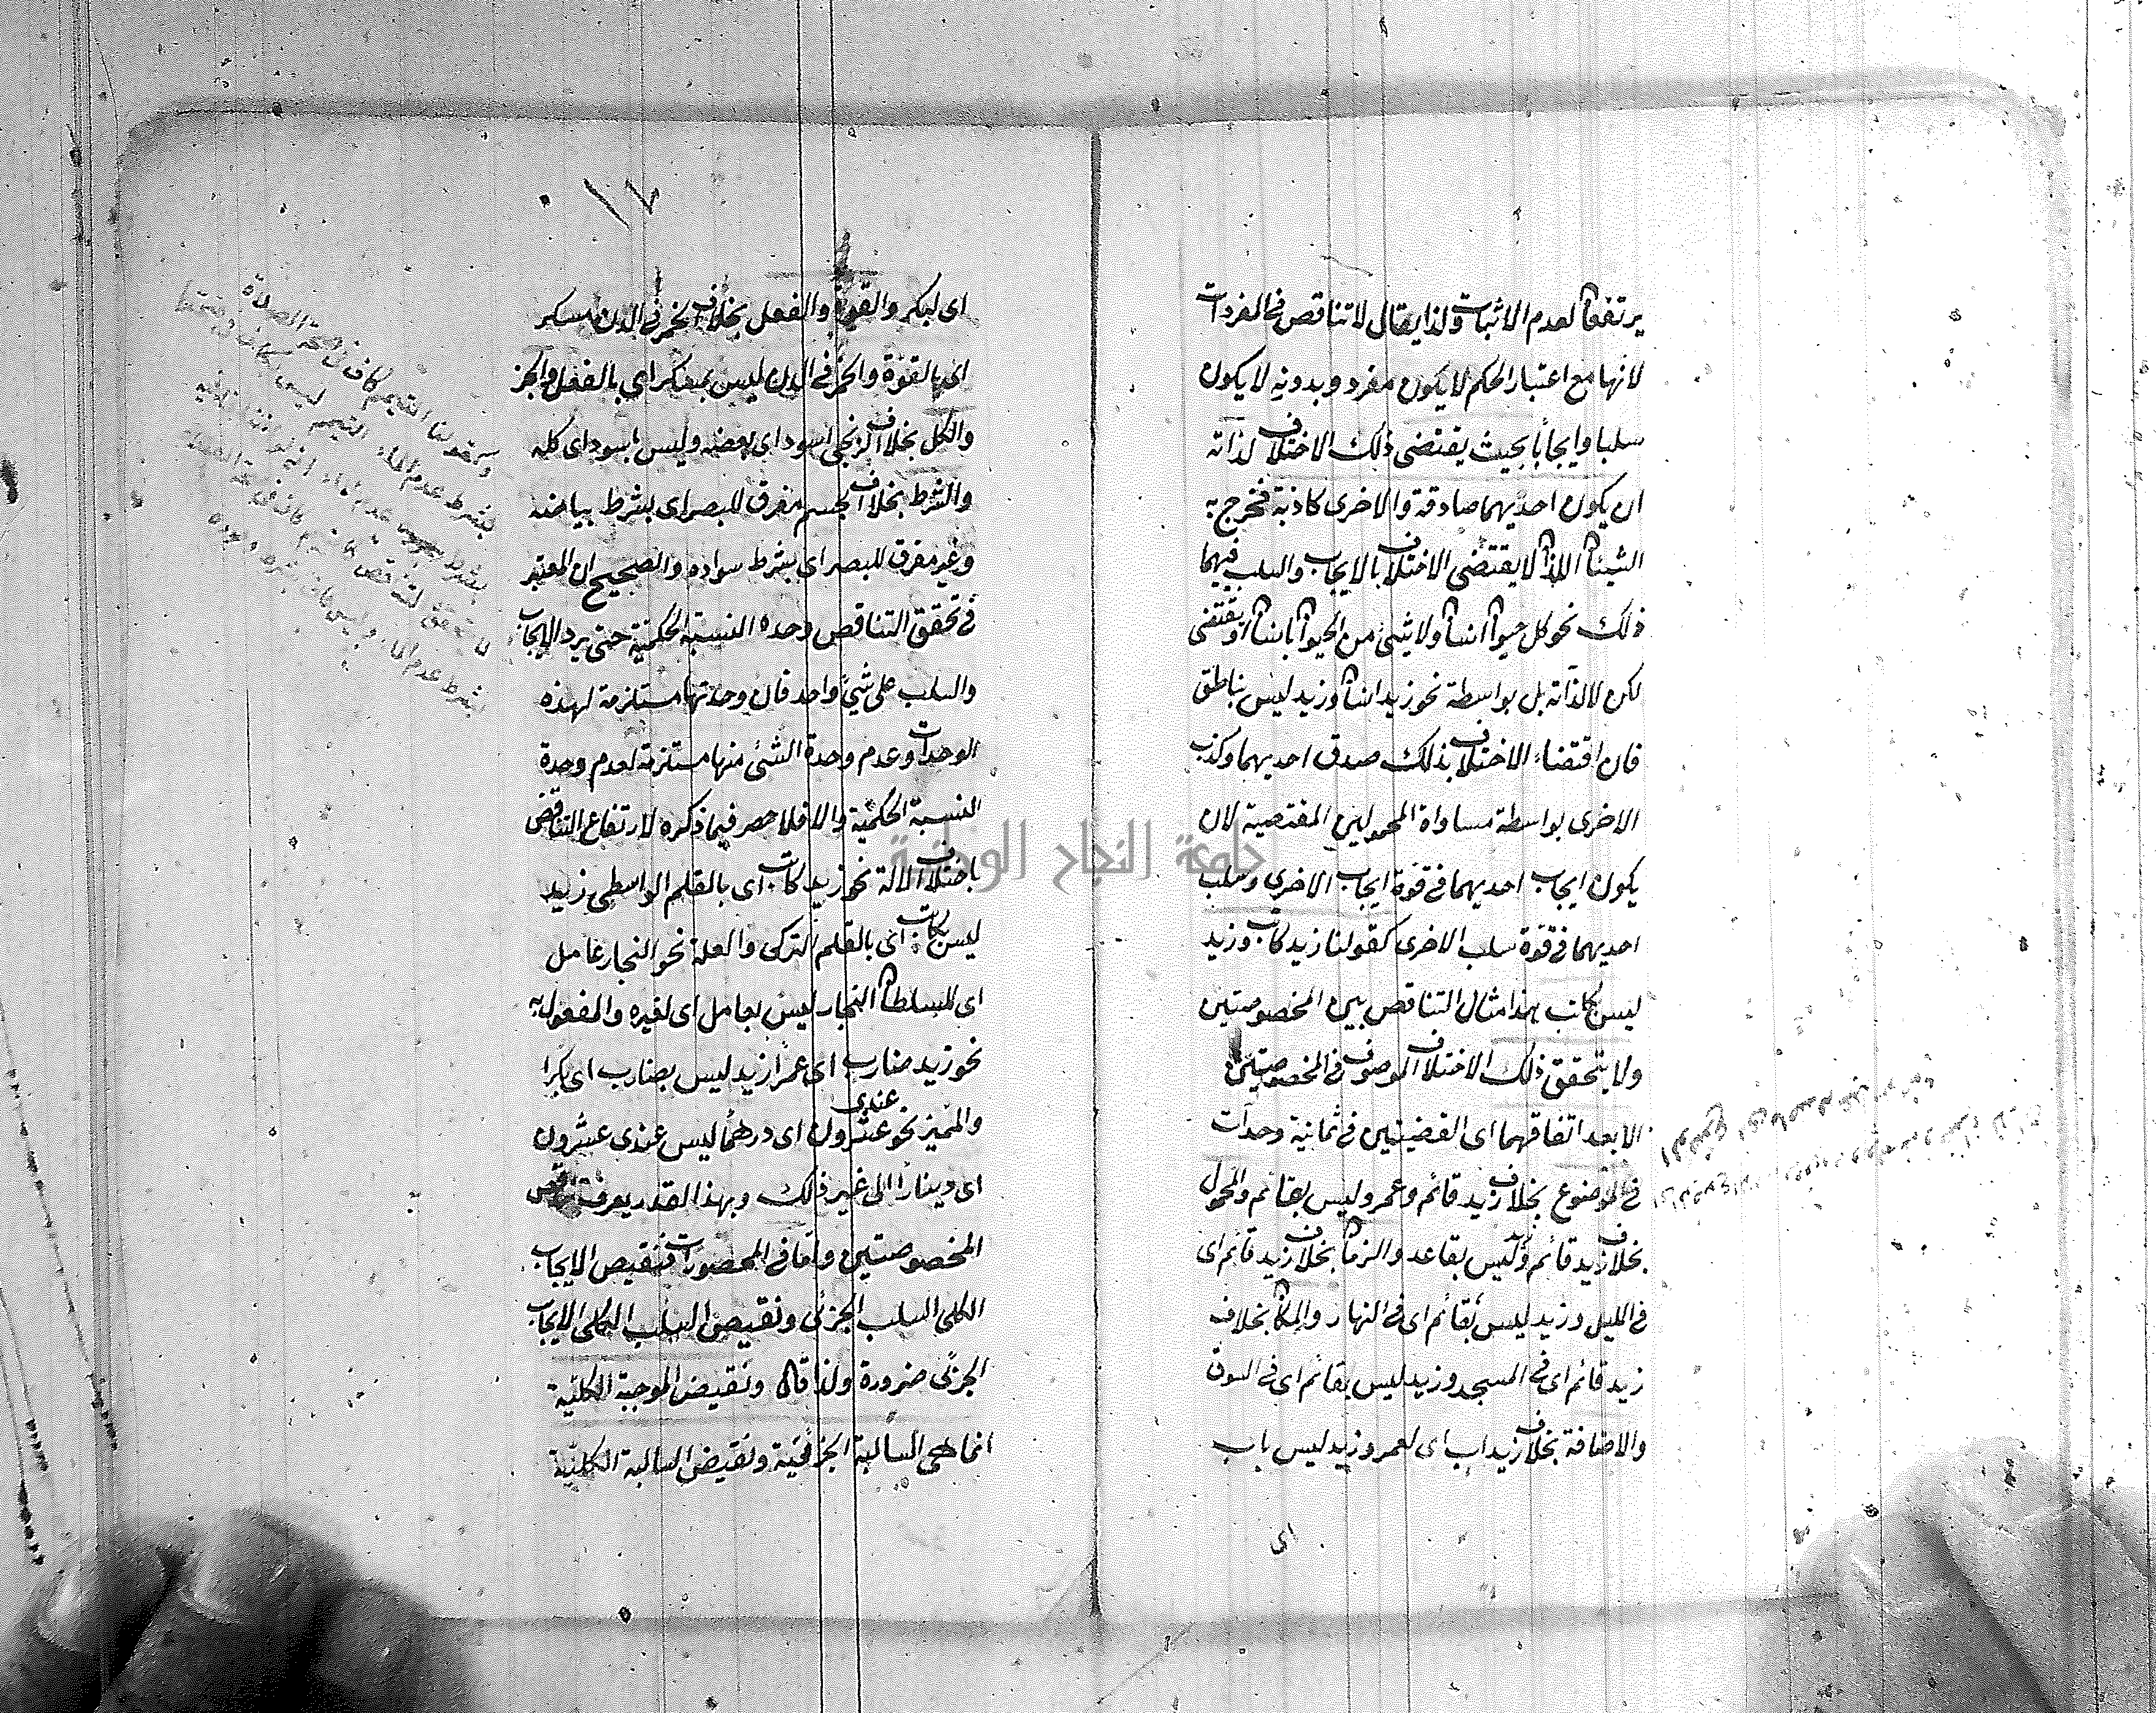 يرتفعان لعدم الاثبات ولذا يقال لا تناقض في المفردات
لانها مع اعتبار الحكم لا يكون مفرد وبدونه لا يكون
سلبا وايجابا بحيث يقتضى ذلك الاختلاف لذاته
ان يكون احديهما صادقة والاخرى كاذبة فخرج به
الشيئان اللذان لا يقتضى الاختلاف بالايجاب والسلب فيهما
ذلك نحو كل حيوان انسان ولا شئ من الحيوان بانسان او يقتضى
لكن لا لذاته بل بواسطة نحو زيد انسان وزيد ليس بناطق
فان اقتضاء الاختلاف بذلك صدق احديهما وكذب
الاخرى بواسطة مساواة المحمولين المقتضية لان
يكون ايجاب احديهما في قوة ايجاب الاخرى وسلب
احديهما في قوة سلب الاخرى كقولنا زيد كاتب وزيد
ليس بكاتب هذا مثال التناقض بين المخصوصتين
ولا يتحقق ذلك الاختلاف الموصوف في المخصوصتين
الا بعد اتفاقهما اى القضيتين في ثمانية وحدات
في الموضوع بخلاف زيد قائم وعمرو ليس بقائم والمحمول
بخلاف زيد قائم وليس بقاعد والزمان بخلاف زيد قائم اى
في الليل وزيد ليس بقائم اى في النهار والمكان بخلاف
زيد قائم اى في المسجد وزيد ليس بقائم اى في السوق
والاضافة بخلاف زيد اب اى لعمرو زيد ليس باب
اى
١٧
اى لبكر والقوة والفعل بخلاف الخمر في الدن مسكر
اى بالقوة والخمر في الدن ليس بمسكر اى بالفعل والجز
والكل بخلاف الزنجى اسود اى بعضه وليس باسود اى كله
والشرط بخلاف الجسم مفرق للبصر اى بشرط بياضه
وغير مفرق للبصر اى بشرط سواده والصحيح ان المعتبر
في تحقق التناقض وحدة النسبة الحكمية حتى يرد الايجاب
والسلب على شئ واحد فان وحدتها مستلزمة لهذه
الوحدات وعدم وحدة الشئ منها مستلزمة لعدم وحدة
النسبة الحكمية والا فلا حصر فيما ذكره لارتفاع التناقض
باختلاف الالة نحو زيد كاتب اى بالقلم الواسطى زيد
ليس بكاتب اى بالقلم التركى والعلة نحو النجار عامل
اى للسلطان النجار ليس بعامل اى لغيره والمفعول به
نحو زيد ضارب اى عمرا زيد ليس بضارب اى بكرا
عندى
والمميز نحو عشرون اى درهما ليس عندى عشرون
اى دينارا الى غير ذلك وبهذا القدر يعرف تناقض
المخصوصتين واما في المحصورات فنقيض الايجاب
الكلى السلب الجزئى ونقيض السلب الكلى الايجاب
الجزئى ضرورة ولذا قال ونقيض الموجبة الكلية
انما هى السالبة الجزئية ونقيض السالبة الكلية
جامعة النجاح الوطنية